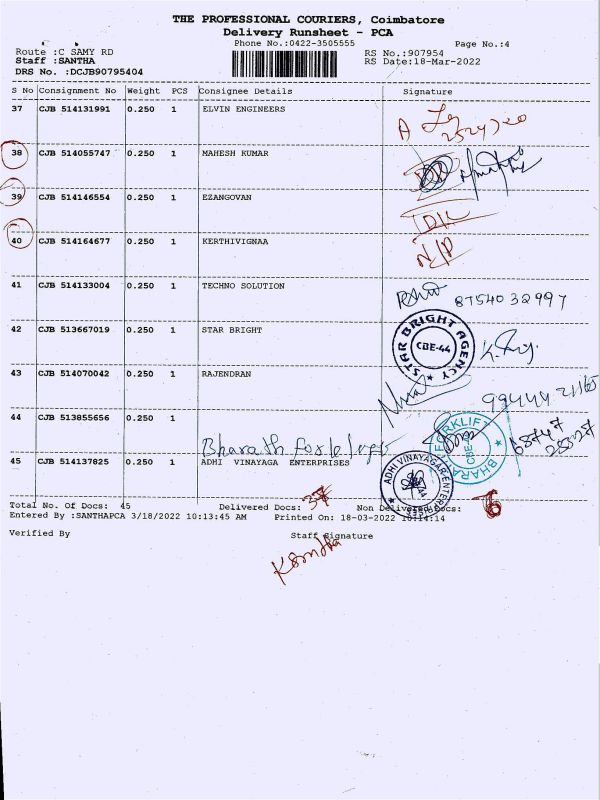 THE PROFESSIONAL COURIERS, Coimbatore
Delivery Runsheet - PCA
Phone No.:0422-3505555 Page No.:4
Route :C SAMY RD RS No.:907954
Staff :SANTHA RS Date:18-Mar-2022
DRS No. :DCJB90795404
S No Consignment No Weight PCS Consignee Details Signature
37 CJB 514131991 0.250 1 ELVIN ENGINEERS
38 CJB 514055747 0.250 1 MAHESH KUMAR
39 CJB 514146554 0.250 1 EZANGOVAN
D/L
40 CJB 514164677 0.250 1 KERTHIVIGNAA
N/P
41 CJB 514133004 0.250 1 TECHNO SOLUTION
8754032997
42 CJB 513667019 0.250 1 STAR BRIGHT
STAR BRIGHT AGENCY
CBE-44
43 CJB 514070042 0.250 1 RAJENDRAN
9944421165
44 CJB 513855656 0.250 1
Bharath
FORKLIFT
BHARAT
45 CJB 514137825 0.250 1 ADHI VINAYAGA ENTERPRISES
ADHI VINAYAGAR ENTERPRISES
Total No. Of Docs: 45 Delivered Docs: 37 Non Delivered Docs:
Entered By :SANTHAPCA 3/18/2022 10:13:45 AM Printed On: 18-03-2022 10:14:14
Verified By Staff Signature